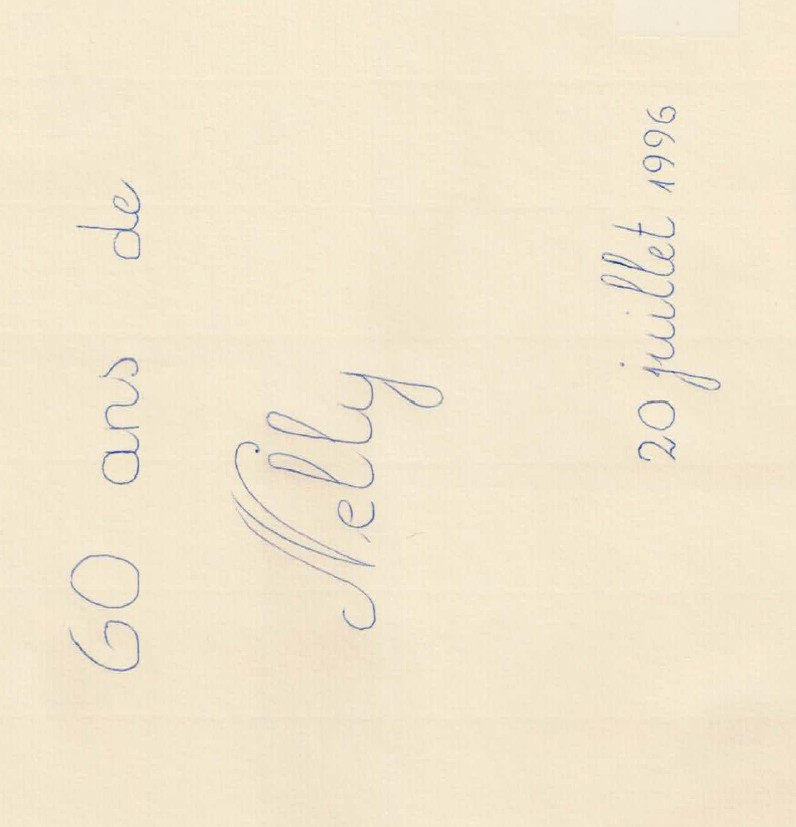 60 ans de
Nelly
20 juillet 1996